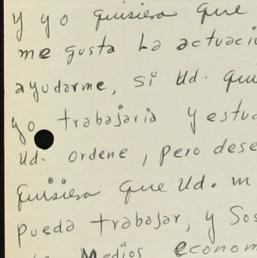 y yo quisiera que
me gusta La actuaci
ayudarme, si Ud. qui
yo trabajaria y estud
Ud. ordene, pero dese
quisiera que Ud. m
pueda trabajar, y Sos
Medios econom